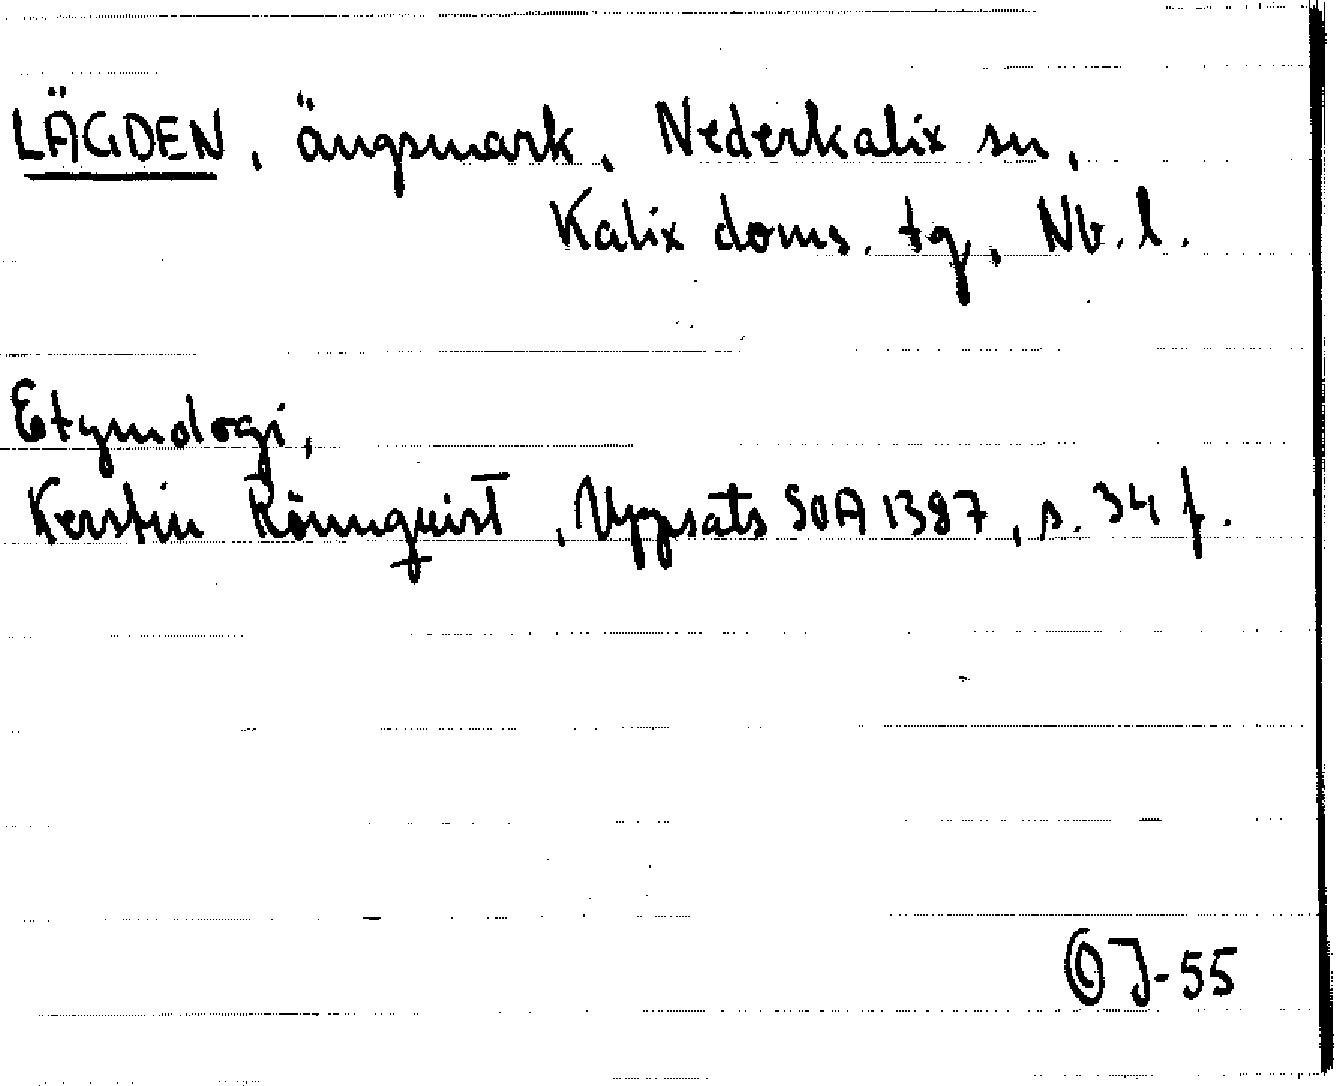 LÄGDEN, ängsmark, Nederkalix sn,
Kalix doms. tg, Nb. l.
Etymologi,
Kerstin Rönnquist, Uppsats SOA 1387, s. 34 f.
OJ-55